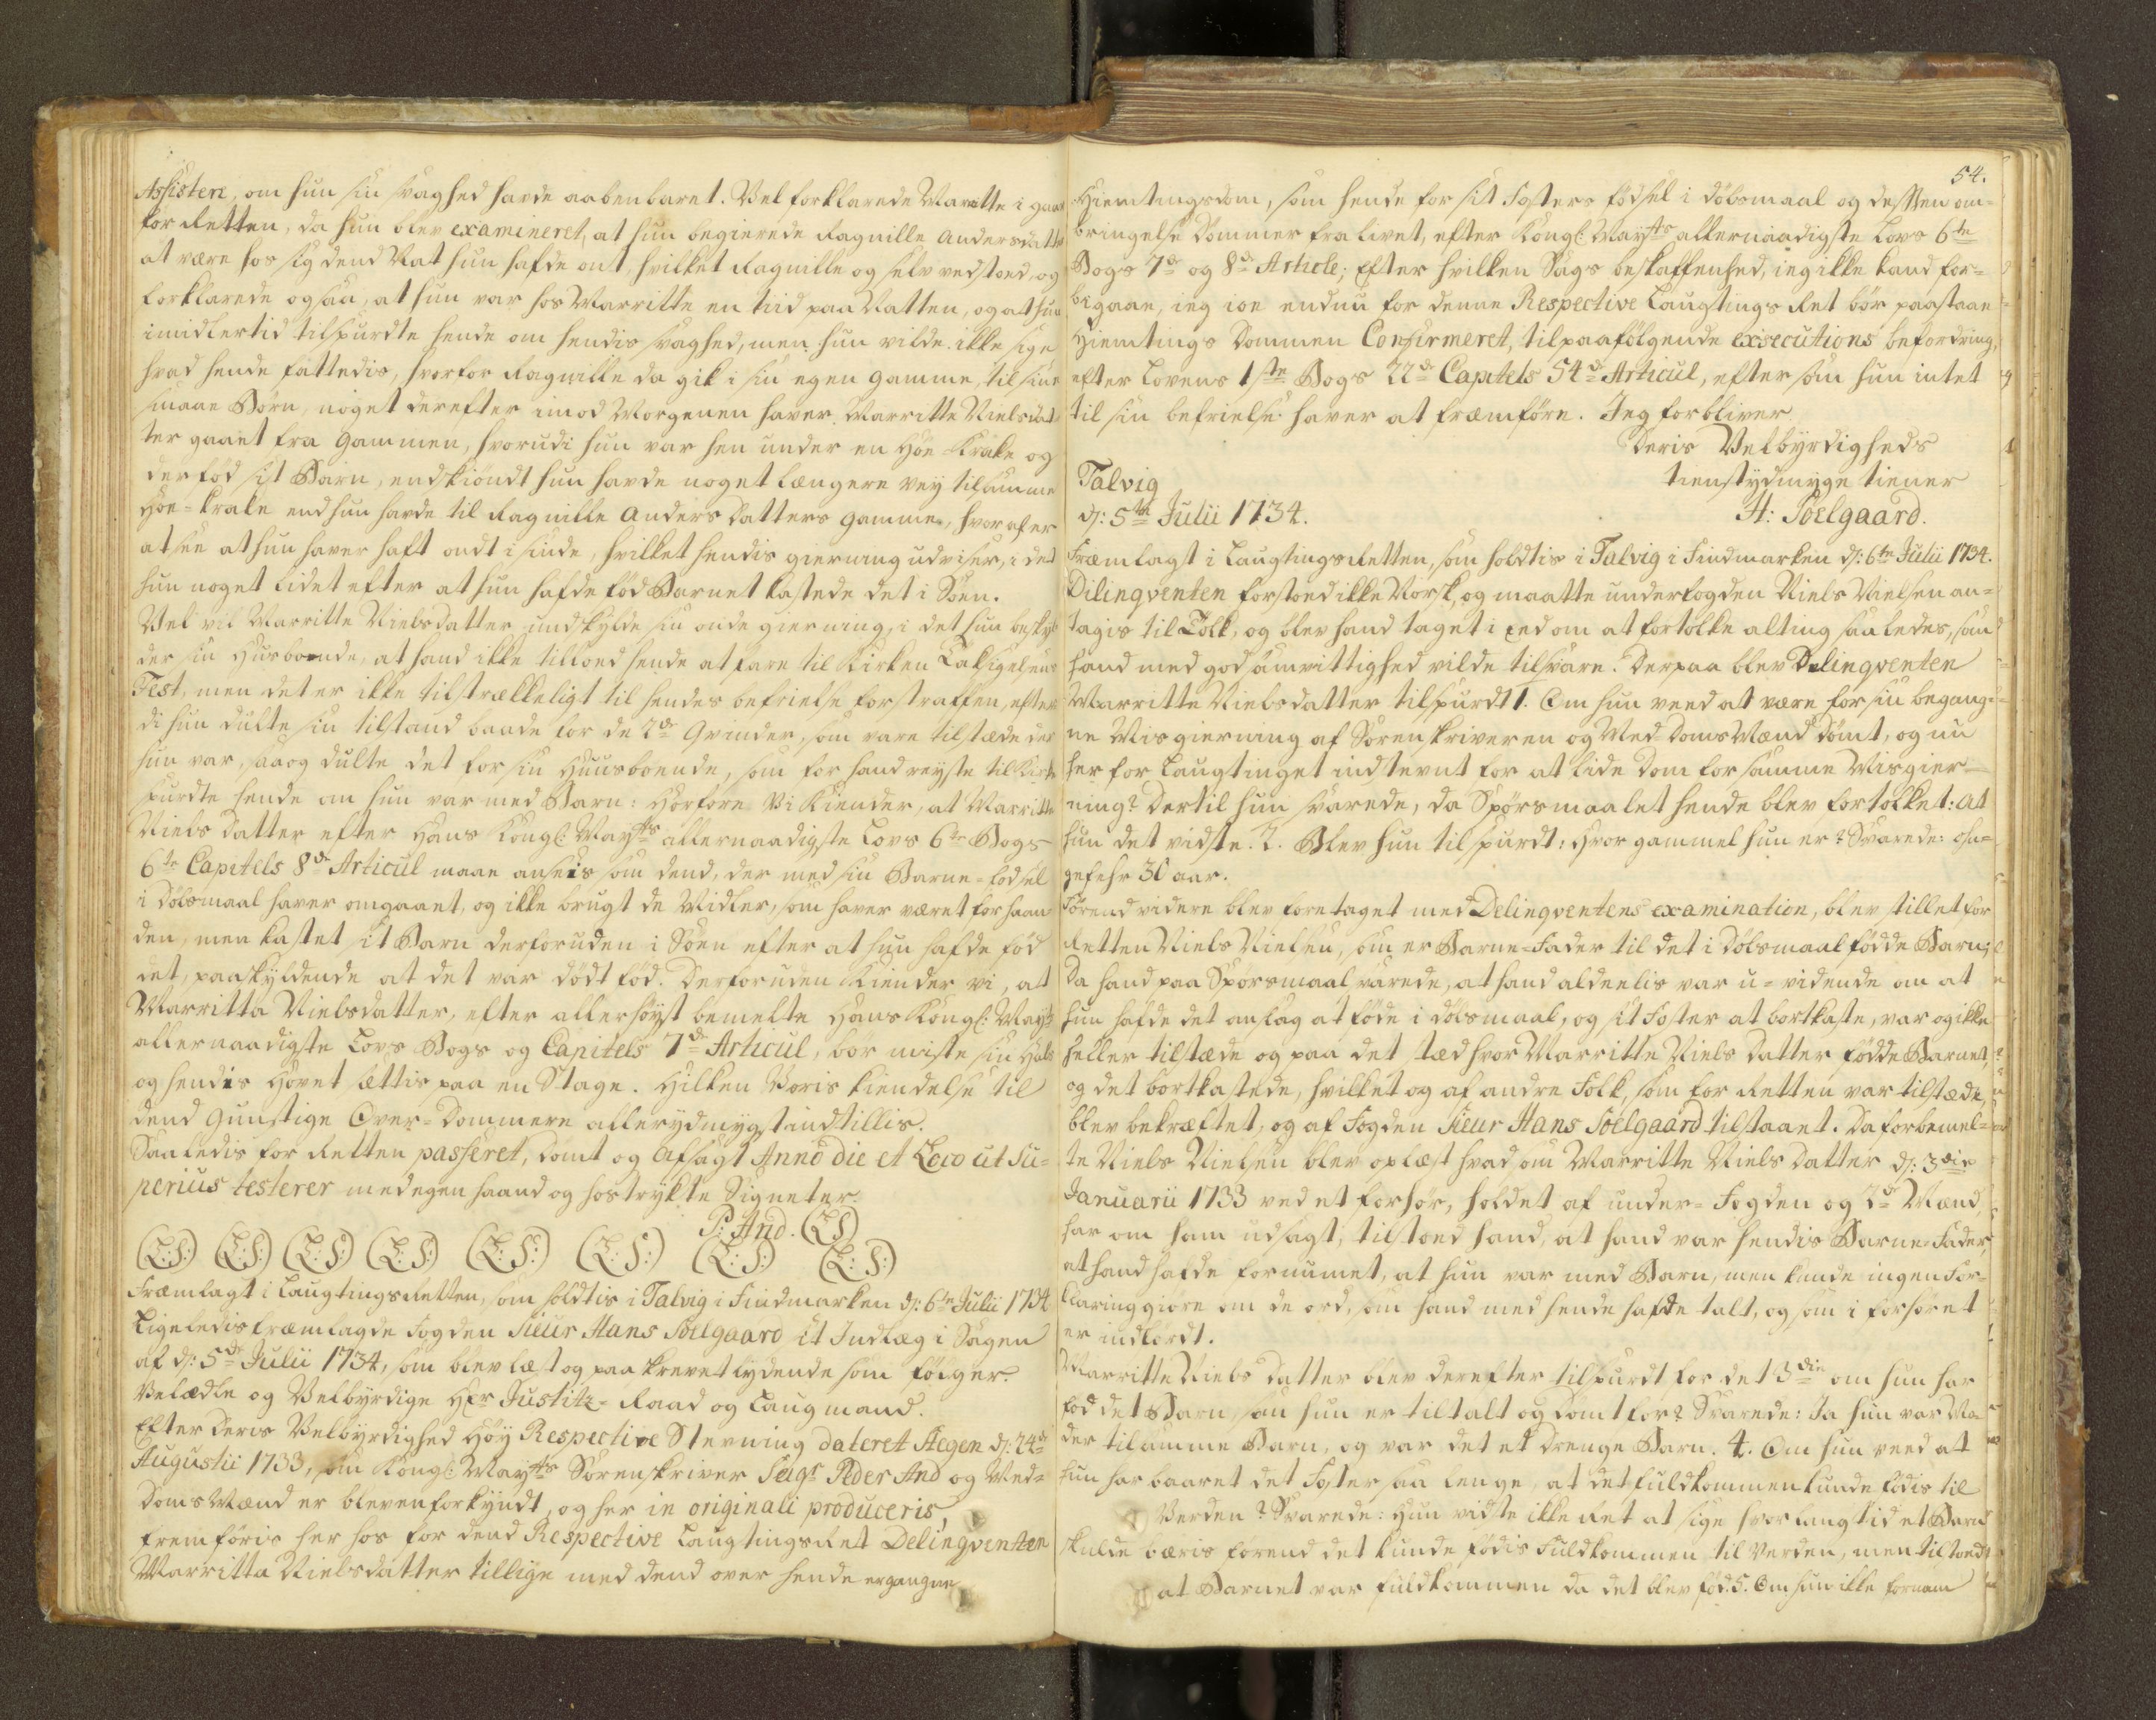 Assistere, om hun sin svaghed havde aabenbaret. Vel forklarede Marritte i gaar
for Retten, da hun blev examineret, at hun begierede Ragnille Andersdatter
at være hos sig dend Nat hun hafde ont, hvilket Ragnille og selv vedstoed, og
forklarede ogsaa, at hun var hos Marritte en tiid paa Natten, og at hun
imidlertid tilspurdte hende om hendis svaghed, men hun vilde ikke sige
hvad hende fattedis, hvorfor Ragnille da gik i sin egen Gamme, til sine
smaae Børn, noget derefter imod Morgenen haver Marritte Nielsdat-
ter gaaet fra Gammen, hvorudi hun var hen under en Høe Krake og
der fød sit Barn, endskiøndt hun havde noget længere vey til samme
Høe-krake end hun havde til Ragnille Anders Datters Gamme, hvoraf er
at see at hun haver haft ondt i sinde, hvilket hendis gierning udviser, i det
hun noget lidet efter at hun hafde fød Barnet kastede det i Søen.
Vel vil Marritte Nielsdatter undskylde sin onde gierning, i det hun beskyl-
der sin Husbonde, at hand ikke tilloed hende at fare til Kirken
Fest, men det er ikke tilstrækkeligt til hendes befrielse for straffen, efter
di hun dulte sin tilstand baade for de 2de Qvinder, som vare tilstæde der
hun var, saa og dulte det for sin Huusbonde, som for hand reyste til Kirke
spurdte hende om hun var med Barn: Hvorfore Vi Kiender, at Marritte
Niels Datter efter Hans Kongl: Mayts allernaadigste Lovs 6te Bogs
6te Capitels 8de Articul maae ansees som dend, der med sin Barne-fødsel
i Dølsmaal haver omgaaet, og ikke brugt de Midler, som haver været for haan
den, men kastet sit Barn derforuden i Søen efter at hun hafde fød
det, paaskyldende at det var dødt fød. Derforuden Kiender vi, at
Marritta Nielsdatter, efter allerhøyst bemelte Hans Kongl: Mayts
allernaadigste Lovs Bogs og Capitels 7de Articul, bør miste sin Hals
og hendis Hovet settis paa en Stage. Hvilken Voris kiendelse til
dend Gunstige Over-Dommere allerydmygst indstillis.
Saaledis for Retten passeret, dømt og Afsagt Anno die et Loco ut su-
perius testerer med egen haand og hostrykte Signeter.
P: And. (LS)
(L:S:) (L:S:) (L:S:) (L:S:) (L:S:) (L:S:) (L:S:) (L:S:)
Fræmlagt i Laugtings Retten, som holdtis i Talvig i Findmarken d: 6te Julii 1734
Ligeledis fræmlagde Fogden Sieur Hans Søelgaard it Indlæg i Sagen
af d: 5te Julii 1734, som blev læst og paaskrevet lydende som følger.
Velædle og Velbyrdige Hr Justitz-Raad og Laugmand.
Efter Deris Velbyrdighed Høy Respective Stevning dateret Stegen d: 24de
Augustii 1733, som Kongl: Mayts Sorenskriver Seigr Peder And og Med-
doms Mænd er bleven forkyndt, og her in originali produceris,
fremføris her hos for dend Respective Laugtings Ret Delinqventen
Marritta Nielsdatter tillige med dend over hende ergangne
54.
Hiemtingsdom, som hende for sit Fosters fødsel i dølsmaal og dessen om-
bringelse Dømmer fra Livet, efter Kongl: Mayts allernaadigste Lovs 6te
Bogs 7de og 8de Article; Efter hvilken Sags beskaffenhed, ieg ikke kand for-
bigaae, ieg ioe endnu for denne Respective Laugtings Ret bør paastaae
Hiemtings Dommen Confirmeret, til paafølgende exsecutions befordring,
efter Lovens 1ste Bogs 22de Capitels 54de Articul, efter som hun intet
til sin befrielse haver at fræmføre. Jeg forbliver
Deris Velbyrdigheds
tienstydmyge tiener
H: Søelgaard.
Talvig
d: 5te Julii 1734.
Fræmlagt i Laugtings Retten, som holdtis i Talvig i Findmarken d: 6te Julii 1734.
Dilinqventen forstoed ikke Norsk, og maatte underfogden Niels Nielsen an-
tagis til Tolk, og blev hand taget i Eed om at fortolke alting saaledes, som
hand med god samvittighed vilde tilsvare. Derpaa blev Delinqventen
Marritte Nielsdatter tilspurdt 1. Om hun veed at være for sin begang-
ne Misgierning af Sorenskriveren og Med Doms Mænd dømt, og nu
her for Laugtinget indstevnt for at lide Dom for samme Misgier-
ning? Dertil hun svarede, da Spørsmaalet hende blev fortolket: At
hun det vidste. 2. Blev hun tilspurdt: Hvor gammel hun er? Svarede: ohn-
gefehr 30 aar.
Førend videre blev foretaget med Delinqventens examination, blev stillet for
Retten Niels Nielsen, som er Barne-Fader til det i Dølsmaal fødde Barn;
Da hand paa Spørsmaal svarede, at hand aldeelis var u-vidende om at
hun hafde det anslag at føde i dølsmaal, og sit Foster at bortkaste, var og ikke
heller tilstæde og paa det sted hvor Marritte Niels Datter fødde Barnet,
og det bortkastede, hvilket og af andre Folk, som for Retten var tilstæde,
blev bekræftet, og af Fogden Sieur Hans Søelgaard tilstaaet. Da forbemel-
te Niels Nielsen blev oplæst hvad om Marritte Niels Datter d: 3die
Januarii 1733 ved et forhør, holdet af under-Fogden og 2de Mænd,
har om ham udsagt, tilstoed hand, at hand var hendis Barne-Fader,
at hand hafde fornumet, at hun var med Barn, men kunde ingen For-
klaring giøre om de ord, som hand med hende hafde talt, og som i forhøret
er indført.
Marritte Niels Datter blev derefter tilspurdt for det 3die om hun har
fød det Barn, som hun er tiltalt og dømt for? Svarede: Ja hun var Mo-
der til samme Barn, og var det et Drenge Barn. 4. Om hun veed at
hun har baaret det Foster saa lenge, at det fuldkommen kunde fødis til
Verden? Svarede: Hun vidste ikke Ret at sige hvor lang tid et Barn
skulde bæris førend det kunde fødis Fuldkommen til Verden, men tilstoed
at Barnet var fuldkommen da det blev fød. 5. Om hun ikke fornam